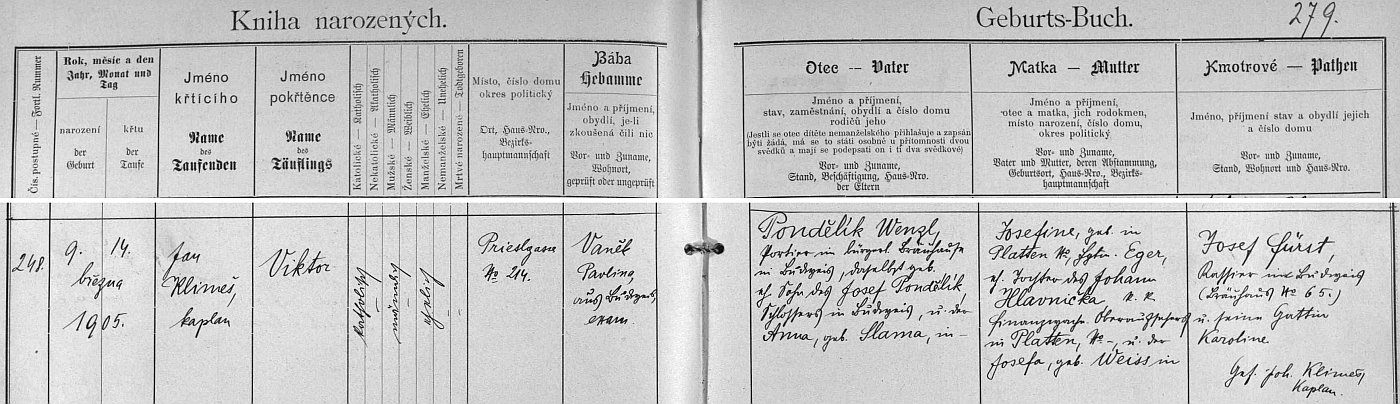 Kniha narozených.
Geburts-Buch.
279.
Čís. postupné — Fortl. Nummer
Rok, měsíc a den
Jahr, Monat und
Tag
narození
der
Geburt
křtu
der
Taufe
Jméno
křtícího
Name
des
Taufenden
Jméno
pokřtěnce
Name
des
Täuflings
Katolické — Katholisch
Nekatolické — Akatholisch
Mužské — Männlich
Ženské — Weiblich
Manželské — Ehelich
Nemanželské — Unehelich
Mrtvé narozené — Todtgeboren
Místo, číslo domu
okres politický
Ort, Haus-Nro.,
Bezirks-
hauptmannschaft
Bába
Hebamme
Jméno a příjmení,
obydlí, je-li
zkoušená čili nic
Vor- und Zuname,
Wohnort,
geprüft oder ungeprüft
Otec — Vater
Jméno a příjmení,
stav, zaměstnání, obydlí a číslo domu
rodičů jeho
(Jestli se otec dítěte nemanželského přihlašuje a zapsán
býti žádá, má se to státi osobně u přítomnosti dvou
svědků a mají se podepsati on i ti dva svědkové)
Vor- und Zuname,
Stand, Beschäftigung, Haus-Nro.
der Eltern
Matka — Mutter
Jméno a příjmení,
otec a matka, jich rodokmen,
místo narození, číslo domu,
okres politický
Vor- und Zuname,
Vater und Mutter, deren Abstammung,
Geburtsort, Haus-Nro., Bezirks-
hauptmannschaft
Kmotrové — Pathen
Jméno, příjmení stav a obydlí jejich
a číslo domu
Vor- und Zuname,
Stand, Wohnort und Haus-Nro.
248.
9. 14.
března
1905.
Jan
Klimeš,
kaplan
Viktor
katholisch
—
männlich
—
ehelich
—
—
Priestgasse
№ 214.
Vaněk
Pavlina,
aus Budweis,
exam.
Pondělík Wenzl,
Portier im bürgerl. Bräuhause
in Budweis, daselbst geb.
eh. Sohn des Josef Pondělík,
Schlossers in Budweis, u. der
Anna, geb. Slama, in -
Josefine, geb. in
Platten №, Eger,
eh. Tochter des Johann
Hlavnička, k. k.
Finanzwach-Oberaufsehers
in Platten, № -, u. der
Josefa, geb. Weiss in
Josef Fürst,
Kassier in Budweis
(Bräuhaus № 65.)
u. seine Gattin
Karoline
Get. Joh. Klimeš,
Kaplan.